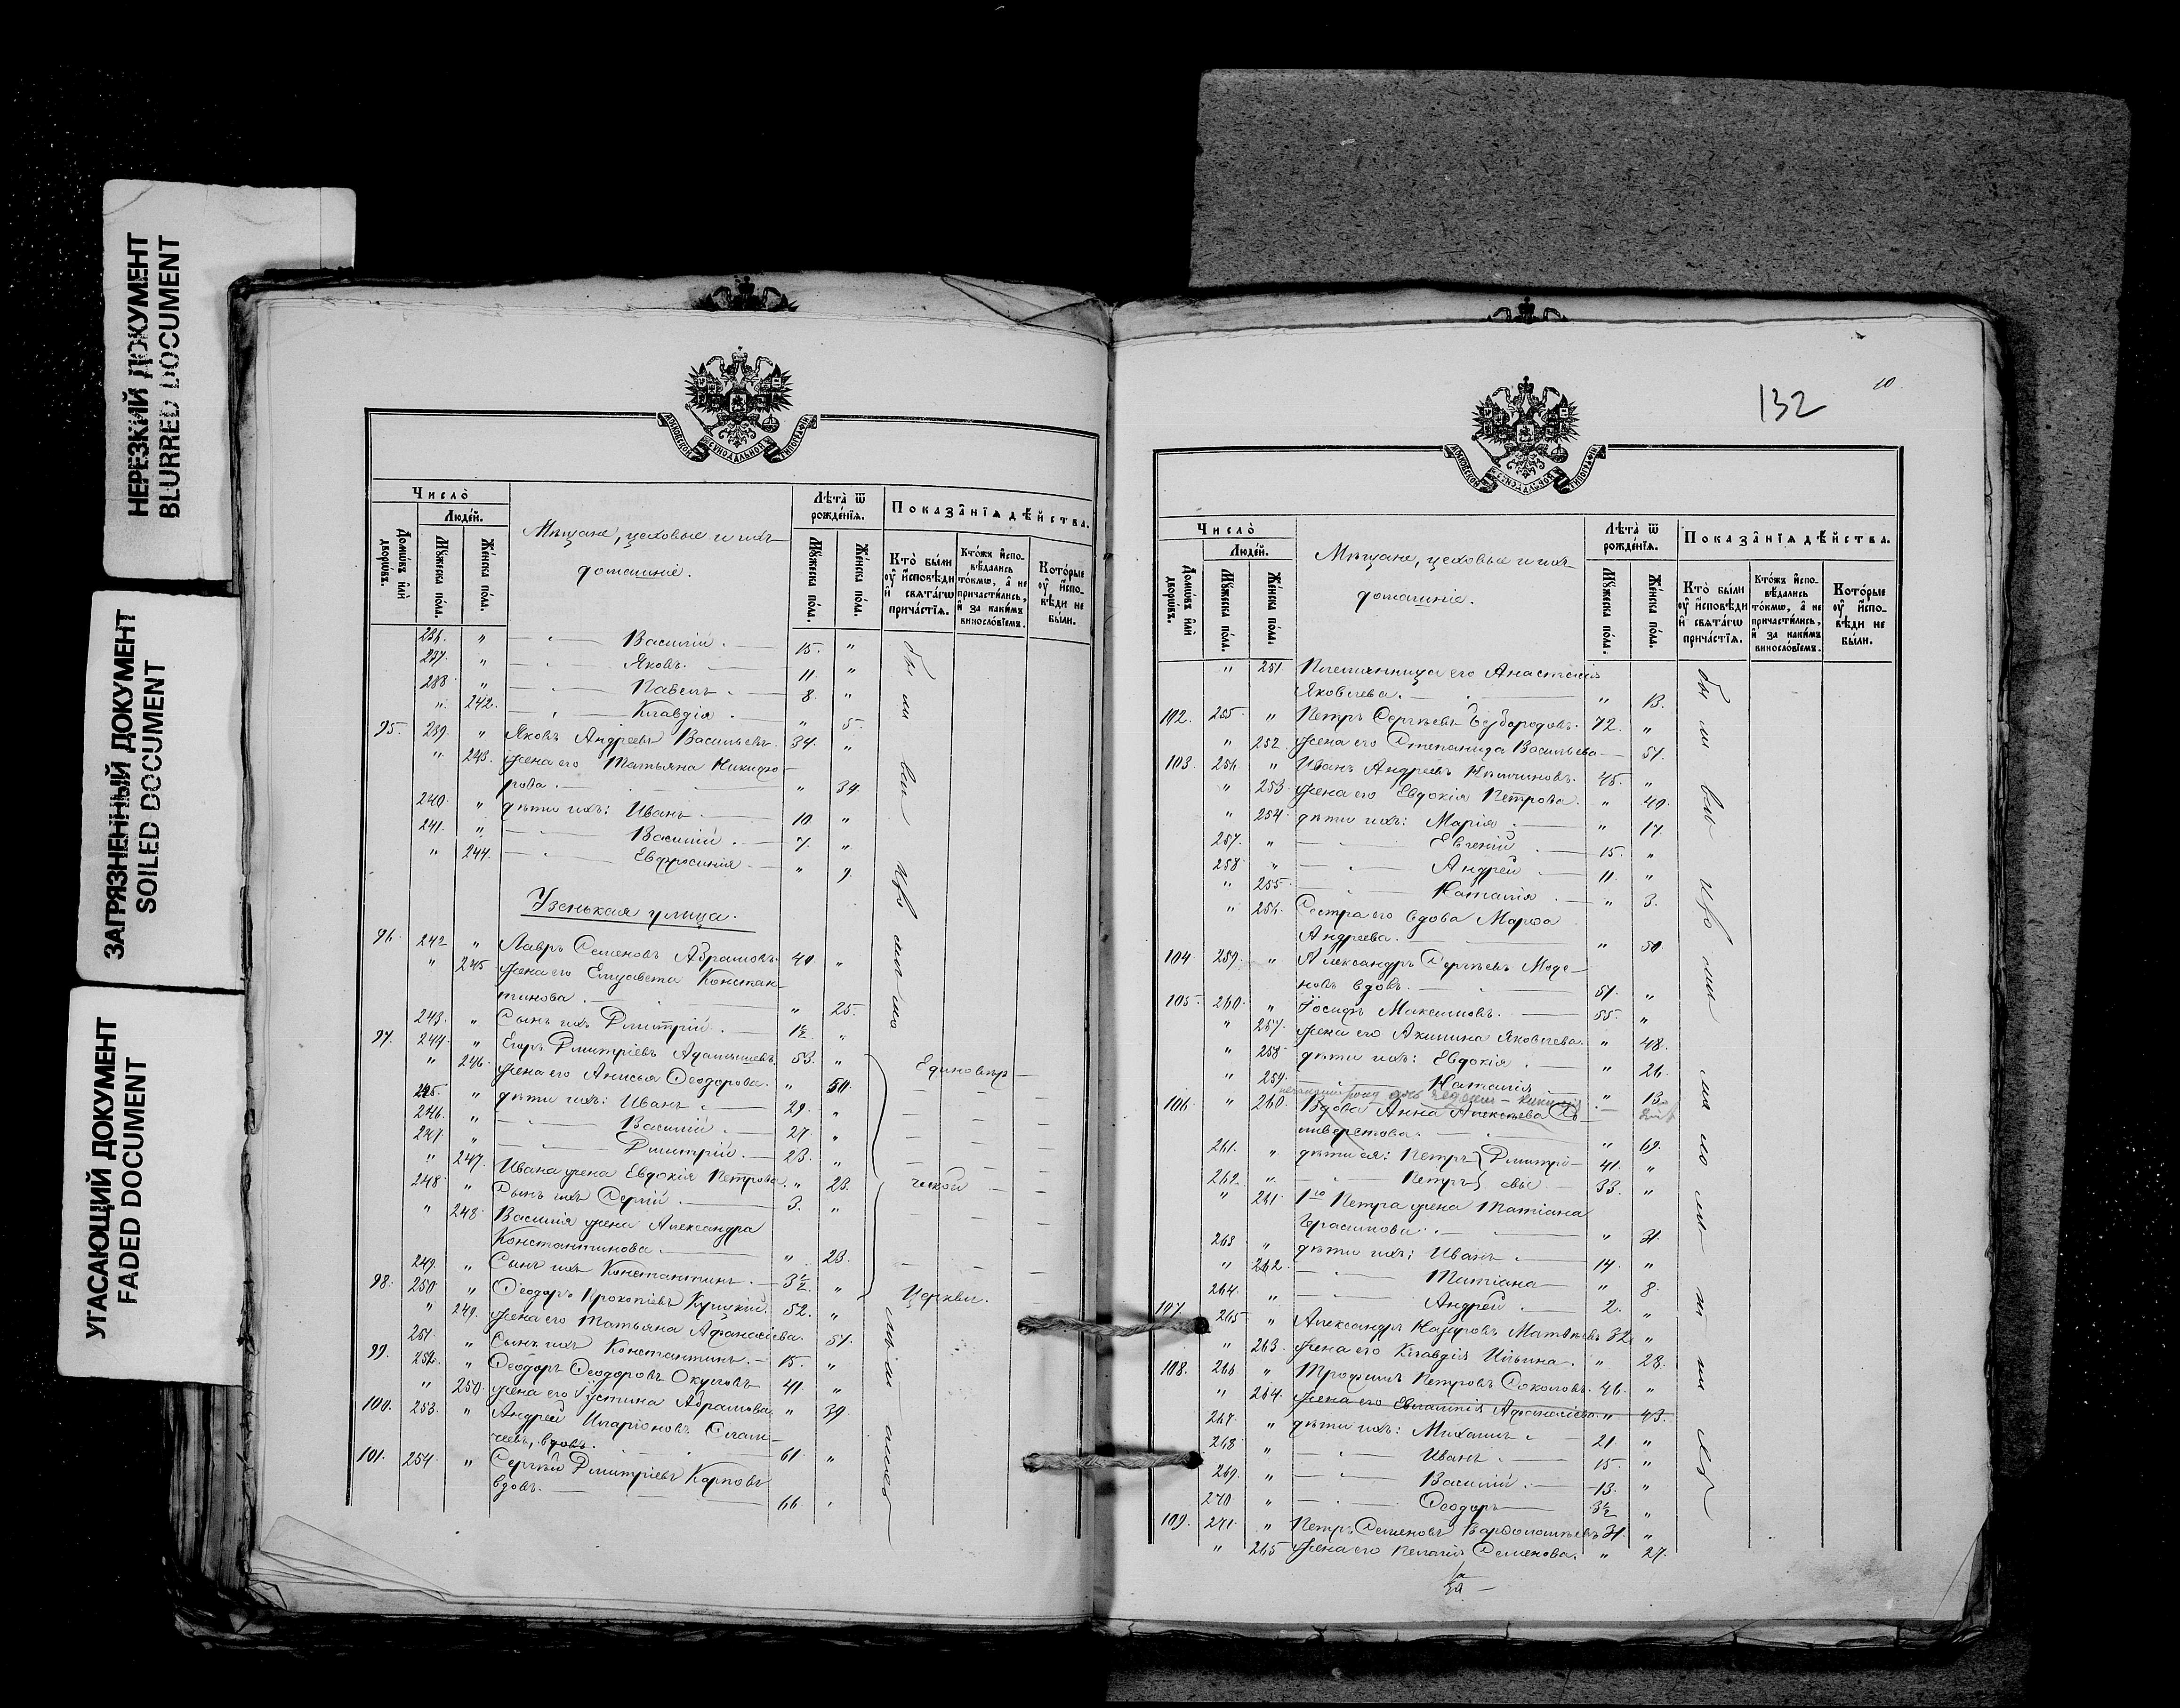 НЕРЕЗКИЙ ДОКУМЕНТ
BLURRED DOCUMENT
ЗАГРЯЗНЕННЫЙ ДОКУМЕНТ
SOILED DOCUMENT
УГАСАЮЩИЙ ДОКУМЕНТ
FADED DOCUMENT
МОСКОВСКОЙ СѴНОДАЛЬНОЙ ТИПОГРАФІИ
Число̀
Людéй.
Домѡ́въ и҆лѝ дворѡ́въ.
Мꙋ́жеска по́ла.
Же́нска по́ла.
Мѣщане, цеховые и ихъ
домашніе.
Лѣта̀ ѿ рожде́нїѧ.
Мꙋ́жеска по́ла.
Же́нска по́ла.
Показа̑нїѧ дѣ́йства.
Кто̀ бы́ли ᲂу҆ и҆сповѣди и҆ свѧта́гѡ прича́стїѧ.
Кто́жъ и҆сповѣдались то́кмѡ, а҆ не причасти́лись, и҆ за каки́мъ винослові́емъ.
Кото́рые ᲂу҆ и҆сповѣди не бы́ли.
236. " — " — Василій. — 15. "
237. " — " — Яковъ. 11 "
288 " — " — Павелъ. — 8. "
" 242. — " — Клавдія. — " 5.
95. 239. " Яковъ Андреевъ Васильевъ. 34. "
" 243. жена его Татьяна Никифо-
рова. — " 34.
240. " дѣти ихъ: Иванъ. — 10 "
241. " — " — Василій. — 7. "
" 244. — " — Евфросинія — " 9.
Узенькая улица.
96. 242 " Лавръ Семеновъ Абрамовъ. 40 "
" 245 жена его Елизавета Констан-
тинова. — " 25.
243. " Сынъ ихъ Дмитрій. — 1½ "
97. 244. " Егоръ Дмитріевъ 53. "
" 246. жена его Анисья Ѳеодорова. " 50.
245. " дѣти ихъ: Иванъ. — 29. "
246. " — " — Василій. — 27 "
247. " — " — Дмитрій. — 23. "
" 247. Ивана жена Евдокія Петрова. " 23.
248. " Сынъ ихъ Сергій. — 3. "
" 248. Василія жена Александра
Константинова. — " 23.
249. " Сынъ ихъ Константинъ. — 3½ "
Единовѣр-
ческой
Церкви.
98. 250 " Ѳеодоръ Прокопіевъ Курицкій. 52. "
" 249. жена его Татьяна Афанасіева. " 51.
251. " Сынъ ихъ Константинъ. — 15. "
99. 252. " Ѳеодоръ Ѳеодоровъ 41. "
" 250. жена его Іустина Абрамова. " 39.
100. 253. " Андрей Иларіоновъ
вдовъ. — 61. "
101. 254. " Сергѣй Дмитріевъ Карповъ
вдовъ. — 66. "
132
10
МОСКОВСКОЙ СѴНОДАЛЬНОЙ ТИПОГРАФІИ
Число̀
Людéй.
Домѡ́въ и҆лѝ дворѡ́въ.
Мꙋ́жеска по́ла.
Же́нска по́ла.
Мѣщане, цеховые и ихъ
домашніе.
Лѣта̀ ѿ рожде́нїѧ.
Мꙋ́жеска по́ла.
Же́нска по́ла.
Показа̑нїѧ дѣ́йства.
Кто̀ бы́ли ᲂу҆ и҆сповѣди и҆ свѧта́гѡ прича́стїѧ.
Кто́жъ и҆сповѣдались то́кмѡ, а҆ не причасти́лись, и҆ за каки́мъ винослові́емъ.
Кото́рые ᲂу҆ и҆сповѣди не бы́ли.
" 251. Племянница его Анастасія
Яковлева. — " 13.
102. 255. " Петръ Сергѣевъ Безбородовъ. 72. "
" 252. жена его Степанида Васильева — 51.
103. 256. " Иванъ Андреевъ 45. "
" 253. жена его Евдокія Петрова. " 40.
" 254. дѣти ихъ: Марія — " 17.
257. " — " — Евгеній — 15. "
258 " — " — Андрей — 11. "
" 255. — " — Наталія — " 3.
" 256. Сестра его вдова Марѳа
Андреева. — " 50.
104. 259. " Александръ Сергѣевъ
вдовъ. — 51. "
105. 260. " Іосифъ Максимовъ. — 55. "
" 257. жена его Акилина Яковлева. " 48.
" 258. дѣти ихъ: Евдокія. " 26.
" 259. — Наталія — " 13.
106. " 260. Вдова Анна Алексѣева Се-
ливерстова. — " 69.
261. " дѣти ея: Петръ } Дмитрі- 41. "
262. " — " — Петръ } евы — 33. "
" 261. 1го Петра жена Татіана
Герасимова. — " 31.
263 " дѣти ихъ: Иванъ. — 14. "
" 262. — " — Татіана — " 8.
264. " — Андрей. — 2. "
107. 265. " Александръ Назаровъ Матвѣевъ 32. "
" 263. жена его Клавдія Ильина. " 28.
108. 266 " Трофимъ Петровъ Соколовъ. 46. "
" 264. жена его Евлампія Афанасіева. " 43.
267. " дѣти ихъ: Михаилъ. — 21. "
268 " — " — Иванъ. — 15. "
269. " — " — Василій. — 13. "
270 " — " — Ѳеодоръ — 3½ "
109. 271. " Петръ Семеновъ Варфоломѣевъ 31. "
" 265 жена его Пелагія Семенова. " 27.